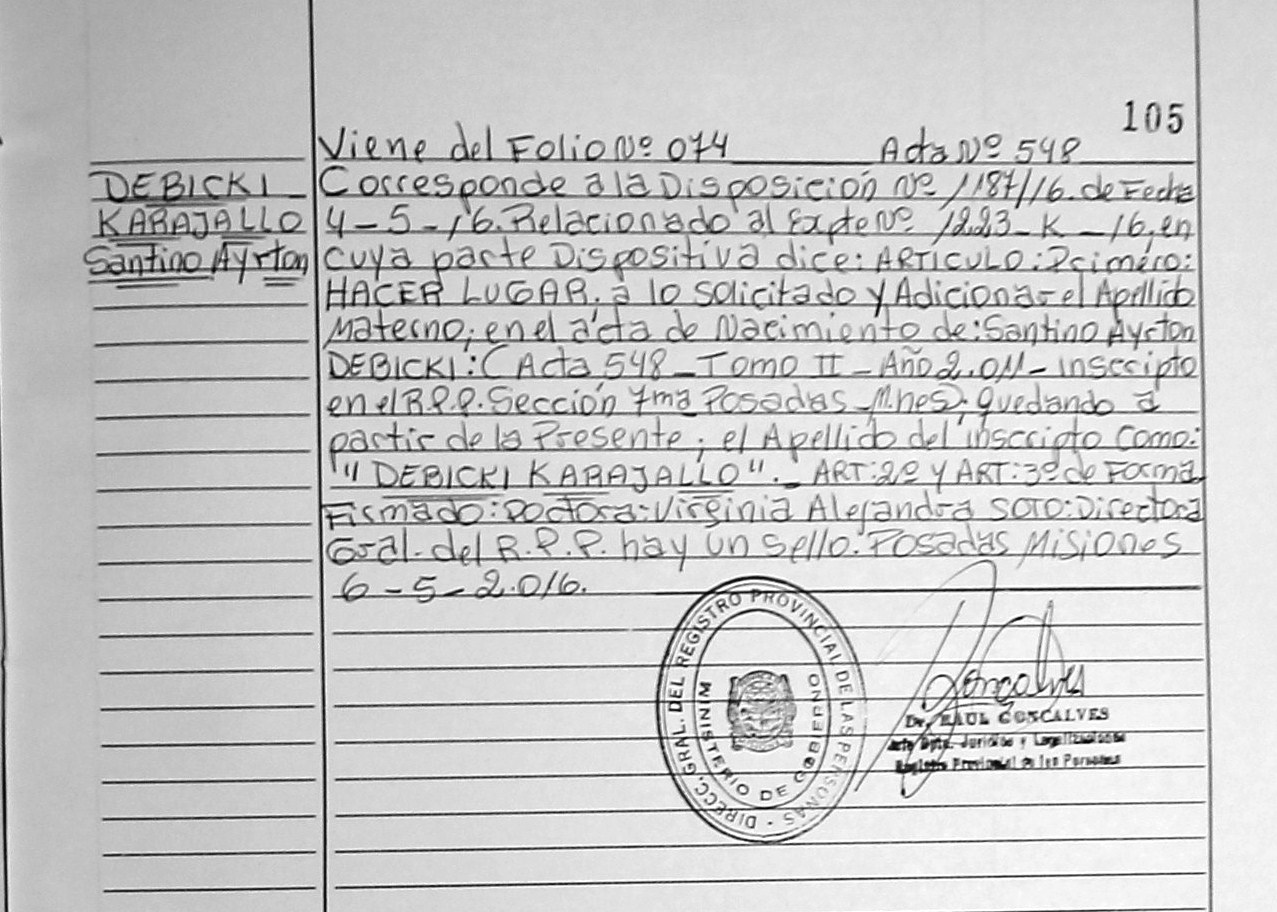 105
Viene del Folio Nº 074 Acta Nº 548
DEBICKI
KARAJALLO
Santino Ayrton
Corresponde a la Disposición Nº 1187/16. de Fecha
4-5-16. Relacionado al Expte Nº 1223-K-16, en
cuya parte Dispositiva dice: ARTICULO: Primero:
HACER LUGAR. a lo solicitado y Adicionar el Apellido
Materno; en el acta de Nacimiento de: Santino Ayrton
DEBICKI: (Acta 548 - Tomo II - Año 2.011 - inscripto
en el R.P.P. Sección 7ma Posadas - Mnes); quedando a
partir de la Presente; el Apellido del inscripto como:
"DEBICKI KARAJALLO".- ART: 2º Y ART: 3º de Forma
Firmado: Doctora: Virginia Alejandra SOTO: Directora
Gral. del R.P.P. hay un sello. Posadas Misiones
6-5-2.016.
DIRECC. GRAL. DEL REGISTRO PROVINCIAL DE LAS PERSONAS
MINISTERIO DE GOBIERNO
Goncalves
Dr. RAUL GONCALVES
Dpto. Jurídico y Legalizaciones
Registro Provincial de las Personas